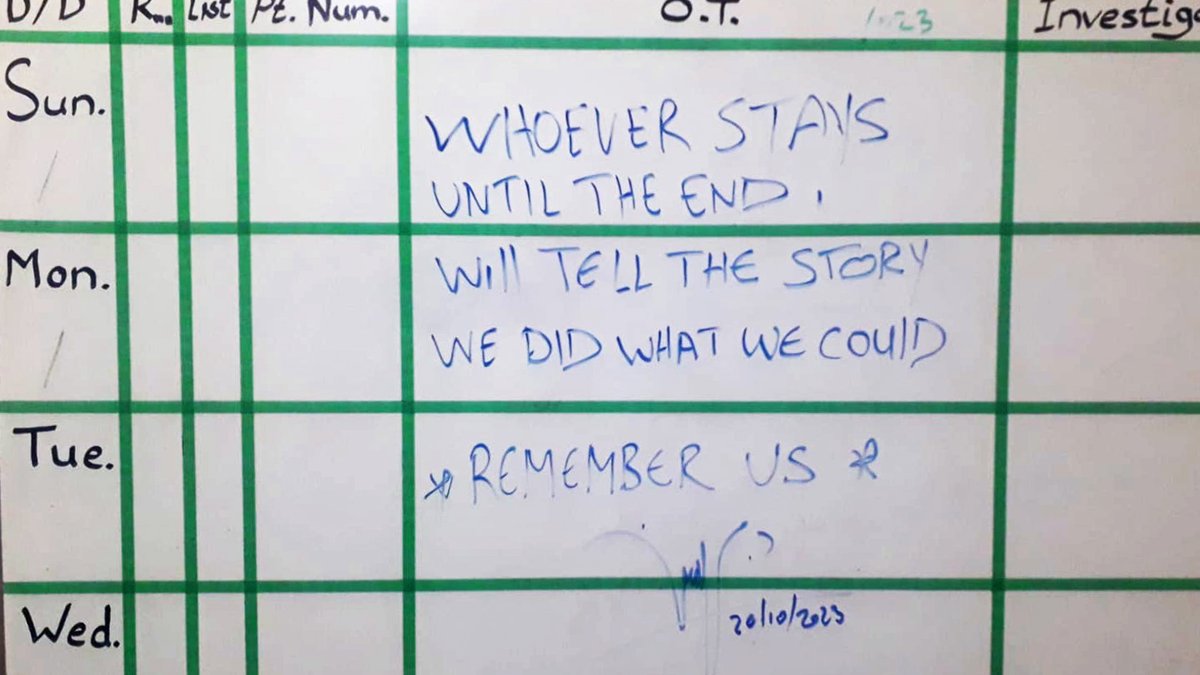 D/D List Pt. Num. O.T. Investiga
Sun.
WHOEVER STAYS
UNTIL THE END.
Mon.
Will TELL THE STORY
WE DID WHAT WE COULD
Tue.
*REMEMBER US*
Wed.
20/10/2023